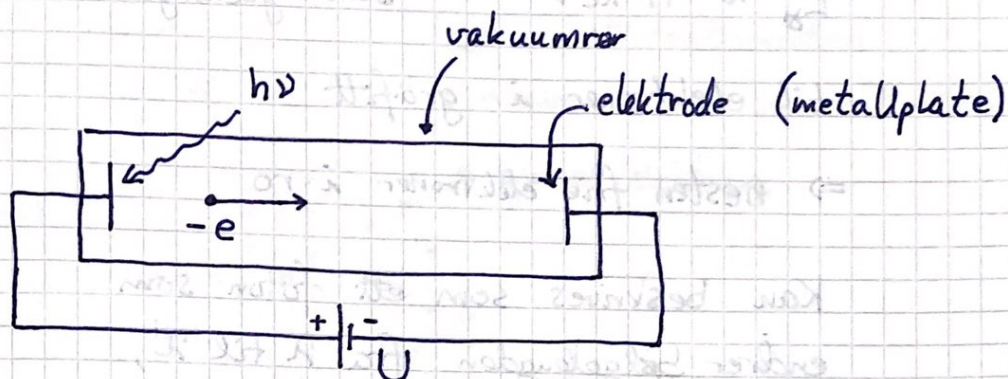 vakuumrør
hν
elektrode (metallplate)
-e
+ -
U